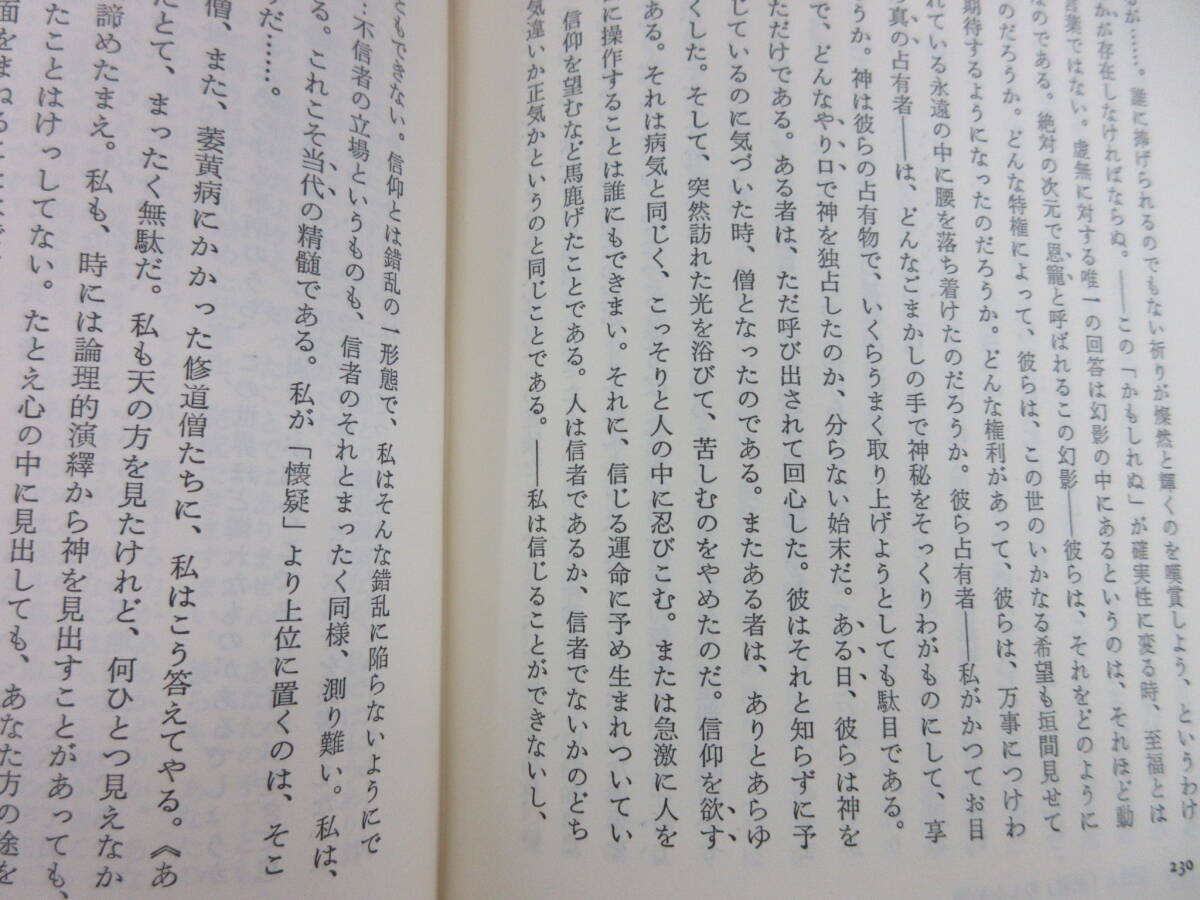 るが……。誰に捧げられるのでもない祈りが燦然と輝くのを嘆賞しよう、というわけ
かが存在しなければならぬ。——この「かもしれぬ」が確実性に変る時、至福とは
言葉ではない。虚無に対する唯一の回答は幻影の中にあるというのは、それほど動
なのである。絶対の次元で恩寵と呼ばれるこの幻影——彼らは、それをどのように
のだろうか。どんな特権によって、彼らは、この世のいかなる希望も垣間見せて
期待するようになったのだろうか。どんな権利があって、彼らは、万事につけわ
れている永遠の中に腰を落ち着けたのだろうか。彼ら占有者——私がかつてお目
真の占有者——は、どんなごまかしの手で神秘をそっくりわがものにして、享
うか。神は彼らの占有物で、いくらうまく取り上げようとしても駄目である。
で、どんなやり口で神を独占したのか、分らない始末だ。ある日、彼らは神を
ただけである。ある者は、ただ呼び出されて回心した。彼はそれと知らずに予
じているのに気づいた時、僧となったのである。またある者は、ありとあらゆ
くした。そして、突然訪れた光を浴びて、苦しむのをやめたのだ。信仰を欲す
ある。それは病気と同じく、こっそりと人の中に忍びこむ。または急激に人を
に操作することは誰にもできまい。それに、信じる運命に予め生まれついてい
信仰を望むなど馬鹿げたことである。人は信者であるか、信者でないかのどち
気違いか正気かというのと同じことである。——私は信じることができないし、
230
ともできない。信仰とは錯乱の一形態で、私はそんな錯乱に陥らないようにで
…不信者の立場というものも、信者のそれとまったく同様、測り難い。私は、
る。これこそ当代の精髄である。私が「懐疑」より上位に置くのは、そこ
だ……。
僧、また、萎黄病にかかった修道僧たちに、私はこう答えてやる。《あ
たとて、まったく無駄だ。私も天の方を見たけれど、何ひとつ見えなか
諦めたまえ。私も、時には論理的演繹から神を見出すことがあっても、
たことはけっしてない。たとえ心の中に見出しても、あなた方の途を